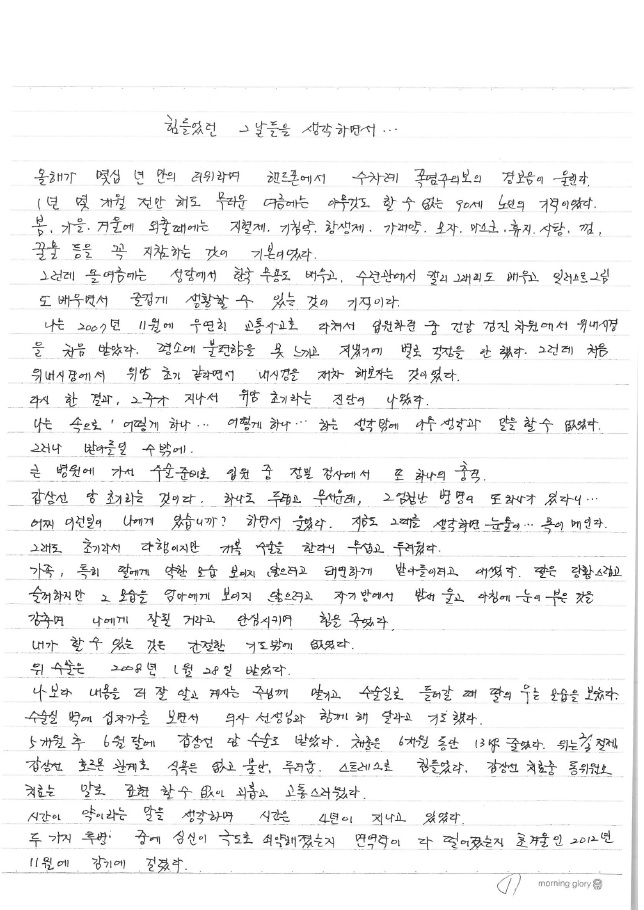 힘들었던 그날들을 생각하면서...
올해가 몇십 년 만의 더위라며 핸드폰에서 수차례 폭염주의보의 경보음이 울렸다.
1년 몇 개월 전만 해도 무더운 여름에는 아무것도 할 수 없는 90세 노인의 기력이었다.
봄, 가을, 겨울에 외출때에는 지혈제, 기침약, 항생제, 가래약, 모자, 마스크, 휴지, 사탕, 껌,
꿀물 등을 꼭 지참하는 것이 기본이었다.
그런데 올여름에는 성당에서 한국무용도 배우고, 수련관에서 캘리그래피도 배우고 일러스트그림
도 배우면서 즐겁게 생활할 수 있는 것이 기적이다.
나는 2007년 11월에 우연히 교통사고로 다쳐서 입원하던 중 건강 검진 차원에서 위내시경
을 처음 받았다. 평소에 불편함을 못 느끼고 지냈기에 별로 걱정을 안 했다. 그런데 처음
위내시경에서 위암 초기 같다면서 내시경을 재차 해보자는 것이었다.
다시 한 결과, 2주가 지나서 위암 초기라는 진단이 나왔다.
나는 속으로 '어떻게 하나... 어떻게 하나... 하는 생각밖에 아무 생각과 말을 할 수 없었다.
그러나 받아들일 수 밖에.
큰 병원에 가서 수술준비로 입원 중 정밀 검사에서 또 하나의 충격.
갑상선 암 초기라는 것이다. 하나도 두렵고 무서운데, 그 엄청난 병명이 또 하나가 있다니...
어찌 이런일이 나에게 있습니까? 하면서 울었다. 지금도 그때를 생각하면 눈물이... 목이 메인다.
그래도 초기라서 다행이지만 개복 수술을 한다니 무섭고 두려웠다.
가족, 특히 딸에게 약한 모습 보이지 않으려고 태연하게 받아들이려고 애썼다. 딸은 당황스럽고
슬퍼하지만 그 모습을 엄마에게 보이지 않으려고 자기 방에서 밤새 울고 아침에 눈이 부은 것을
감추며 나에게 잘될 거라고 안심시키며 힘을 주었다.
내가 할 수 있는 것은 간절한 기도밖에 없었다.
위 수술은 2008년 1월 28일 받았다.
나보다 내용을 더 잘 알고 계시는 주님께 맡기고 수술실로 들어갈 때 딸의 우는 모습을 보았다.
수술실 벽에 십자가를 보면서 의사 선생님과 함께 해 달라고 기도했다.
5개월 후 6월달에 갑상선 암 수술도 받았다. 체중은 6개월 동안 13kg 줄었다. 위는 절제
갑상선 호르몬 관계로 식욕은 없고 불안, 두려움, 스트레스로 힘들었다. 갑상선 치료중 동위원소
치료는 말로 표현 할 수 없이 괴롭고 고통스러웠다.
시간이 약이라는 말을 생각하며 시간은 4년이 지나고 있었다.
두 가지 투병 중에 심신이 극도로 쇠약해졌는지 면역력이 다 떨어졌는지 초겨울인 2012년
11월에 감기에 걸렸다.
1) morning glory